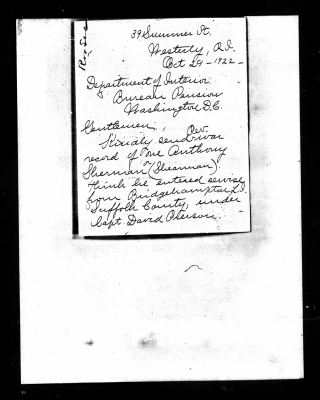 39 Summer St.
Westerly, R.I.
Oct 29-1922-
Department of Interior
Bureau Pension
Washington D.C.
Gentlemen,
Rev.
Kindly send war
record of one Anthony
Sherman or (Shearman).
Think he entered service
from Bridgehampton L.I.
Suffolk County, under
Capt. David Pierson.